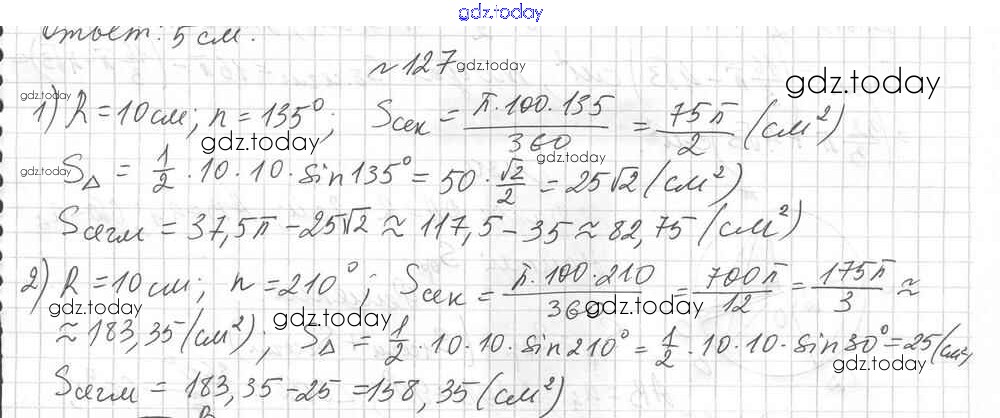 gdz.today
Ответ: 5 см.
№127 gdz.today
gdz.today
gdz.today
1) R = 10 см; n = 135°; Sсек = π·100·135/360 = 75π/2 (см²)
gdz.today
gdz.today
gdz.today
SΔ = 1/2 · 10 · 10 · sin135° = 50 · √2/2 = 25√2 (см²)
Sсегм = 37,5π - 25√2 ≈ 117,5 - 35 ≈ 82,75 (см²)
2) R = 10 см; n = 210°; Sсек = π·100·210/360 = 700π/12 = 175π/3 ≈
gdz.today
gdz.today
gdz.today
≈ 183,35 (см²); SΔ = 1/2 · 10 · 10 · sin210° = 1/2 · 10 · 10 · sin30° = 25 (см²)
gdz.today
Sсегм = 183,35 - 25 = 158,35 (см²)